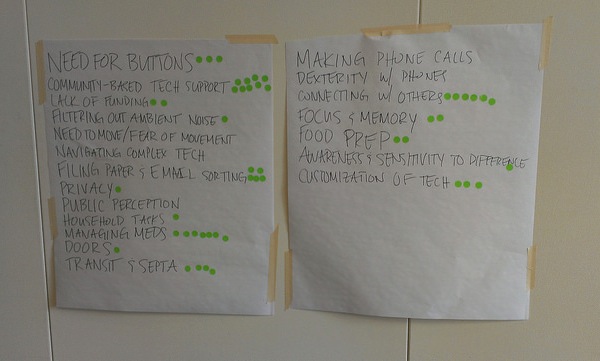 NEED FOR BUTTONS
COMMUNITY-BASED TECH SUPPORT
LACK OF FUNDING
FILTERING OUT AMBIENT NOISE
NEED TO MOVE/FEAR OF MOVEMENT
NAVIGATING COMPLEX TECH
FILING PAPER & EMAIL SORTING
PRIVACY
PUBLIC PERCEPTION
HOUSEHOLD TASKS
MANAGING MEDS
DOORS
TRANSIT & SEPTA
MAKING PHONE CALLS
DEXTERITY W/ PHONES
CONNECTING W/ OTHERS
FOCUS & MEMORY
FOOD PREP
AWARENESS & SENSITIVITY TO DIFFERENCE
CUSTOMIZATION OF TECH